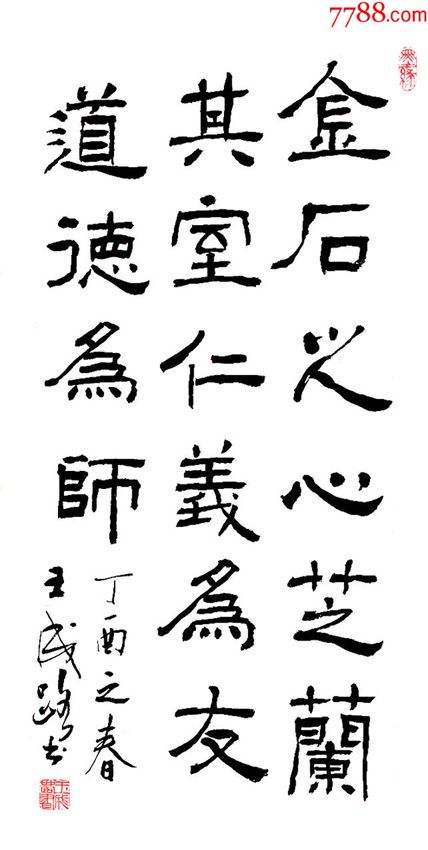 7788.com
金石之心芝蘭
其室仁義為友
道德為師
丁酉之春
王成路书